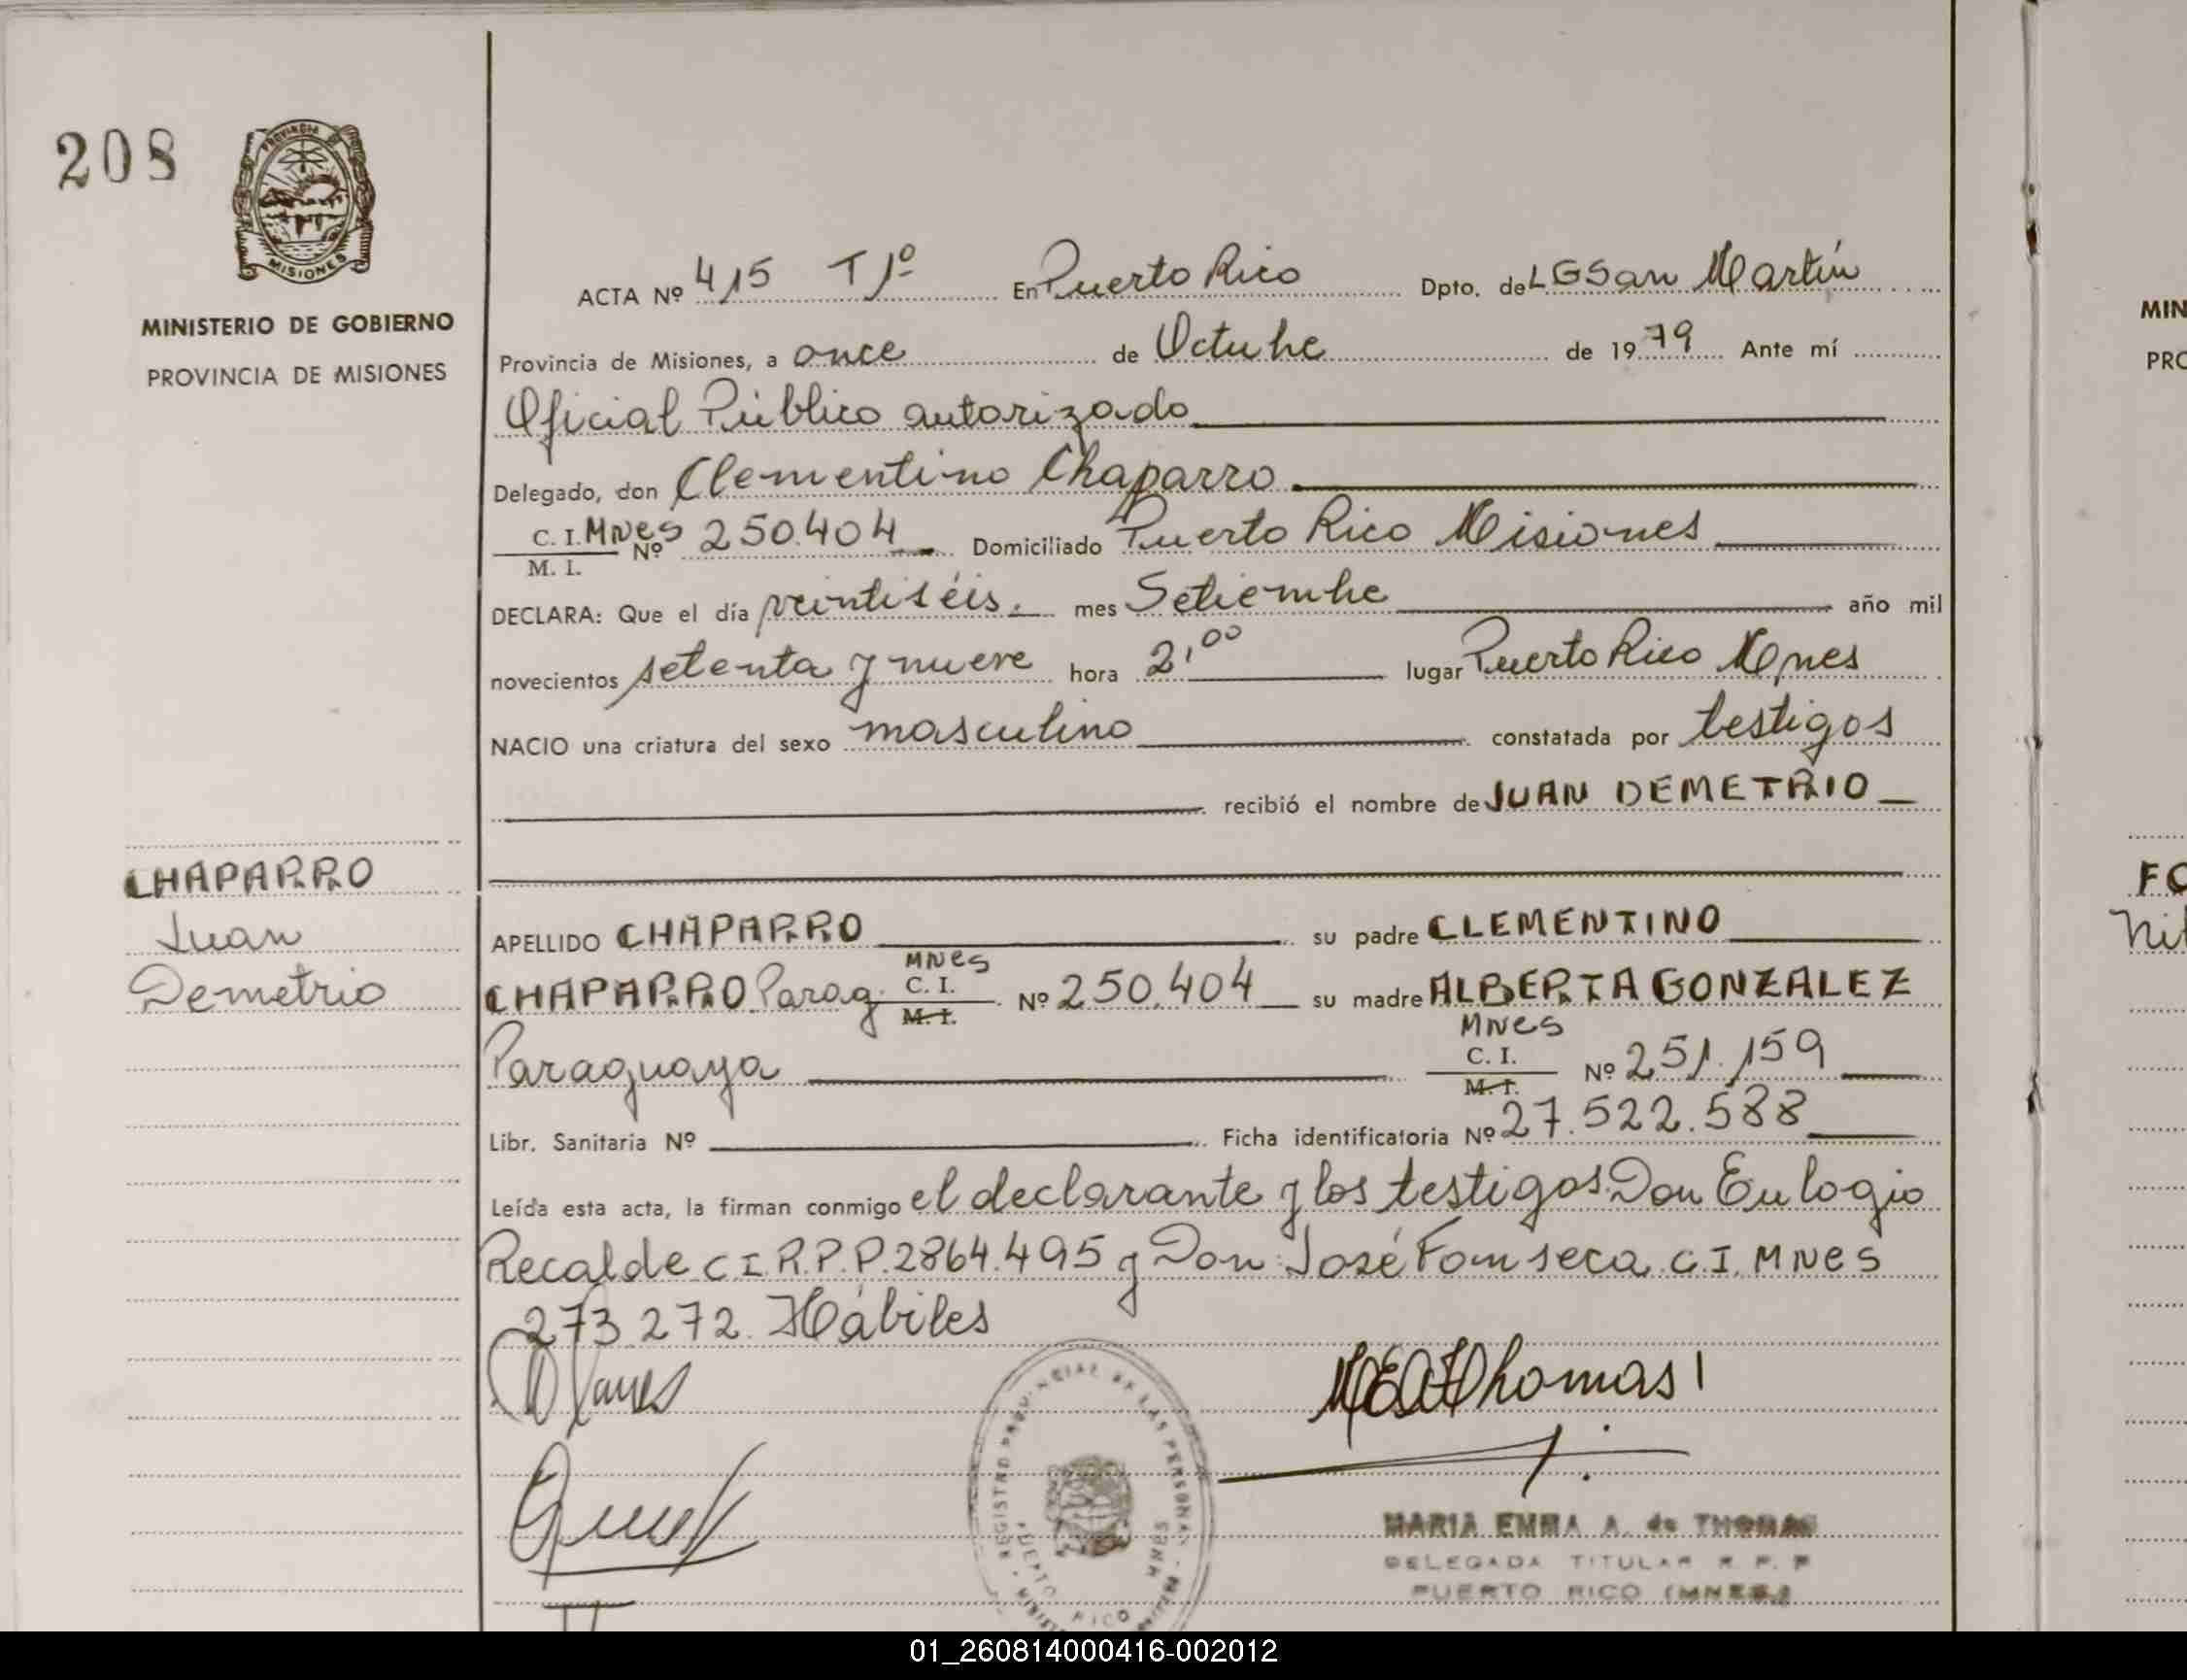 208
PROVINCIA DE
MISIONES
MINISTERIO DE GOBIERNO
PROVINCIA DE MISIONES
CHAPARRO
Juan
Demetrio
ACTA Nº 415 T 1º En Puerto Rico Dpto. de LGSan Martín
Provincia de Misiones, a once de Octubre de 1979 Ante mí
Oficial Público autorizado
Delegado, don Clementino Chaparro
C. I. MNes
M. I. Nº 250.404 Domiciliado Puerto Rico Misiones
DECLARA: Que el día veintiséis. mes Setiembre año mil
novecientos setenta y nueve hora 2,00 lugar Puerto Rico Mnes
NACIO una criatura del sexo masculino constatada por testigos
recibió el nombre de JUAN DEMETRIO
APELLIDO CHAPARRO su padre CLEMENTINO
CHAPARRO Parag. MNes C. I. M. I. Nº 250.404 su madre ALBERTA GONZALEZ
Paraguaya MNes C. I. M. I. Nº 251.159
Libr. Sanitaria Nº Ficha identificatoria Nº 27.522.588
Leída esta acta, la firman conmigo el declarante y los testigos Don Eulogio
Recalde C.I.R.P.P. 2864.495 y Don José Fonseca C.I. MNes
273.272. Hábiles
MEAThomas
REGISTRO PROVINCIAL DE LAS PERSONAS
DEPTO RICO MNES
MARIA EMMA A. de THOMAS
DELEGADA TITULAR R. P. P
PUERTO RICO (MNES.)
MIN
PRO
FO
Nil
01_260814000416-002012